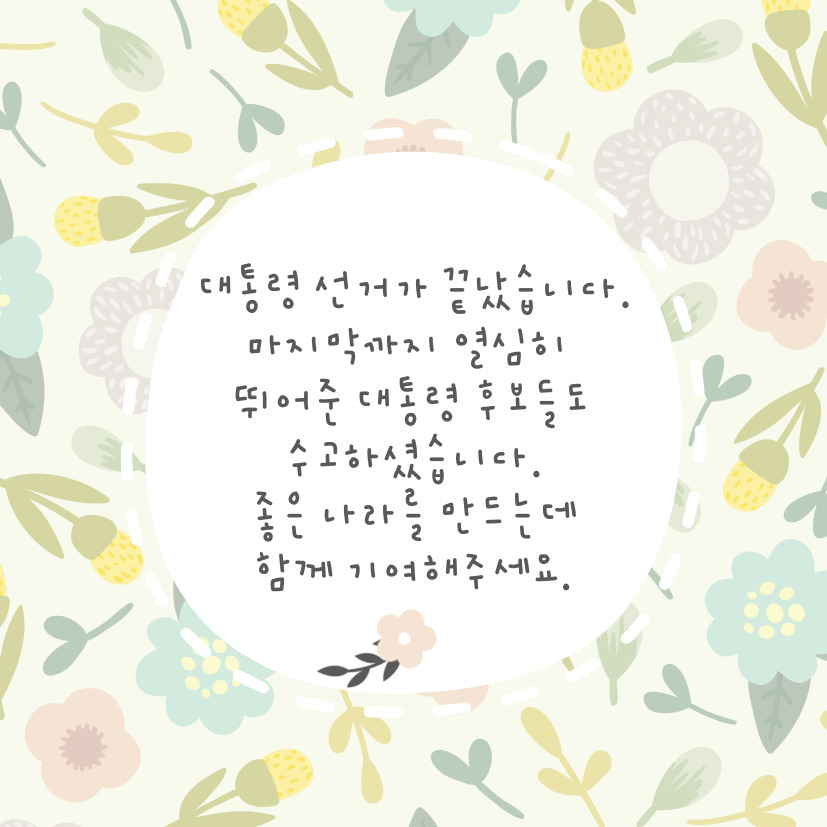 대통령 선거가 끝났습니다.
마지막까지 열심히
뛰어준 대통령 후보들도
수고하셨습니다.
좋은 나라를 만드는데
함께 기여해주세요.